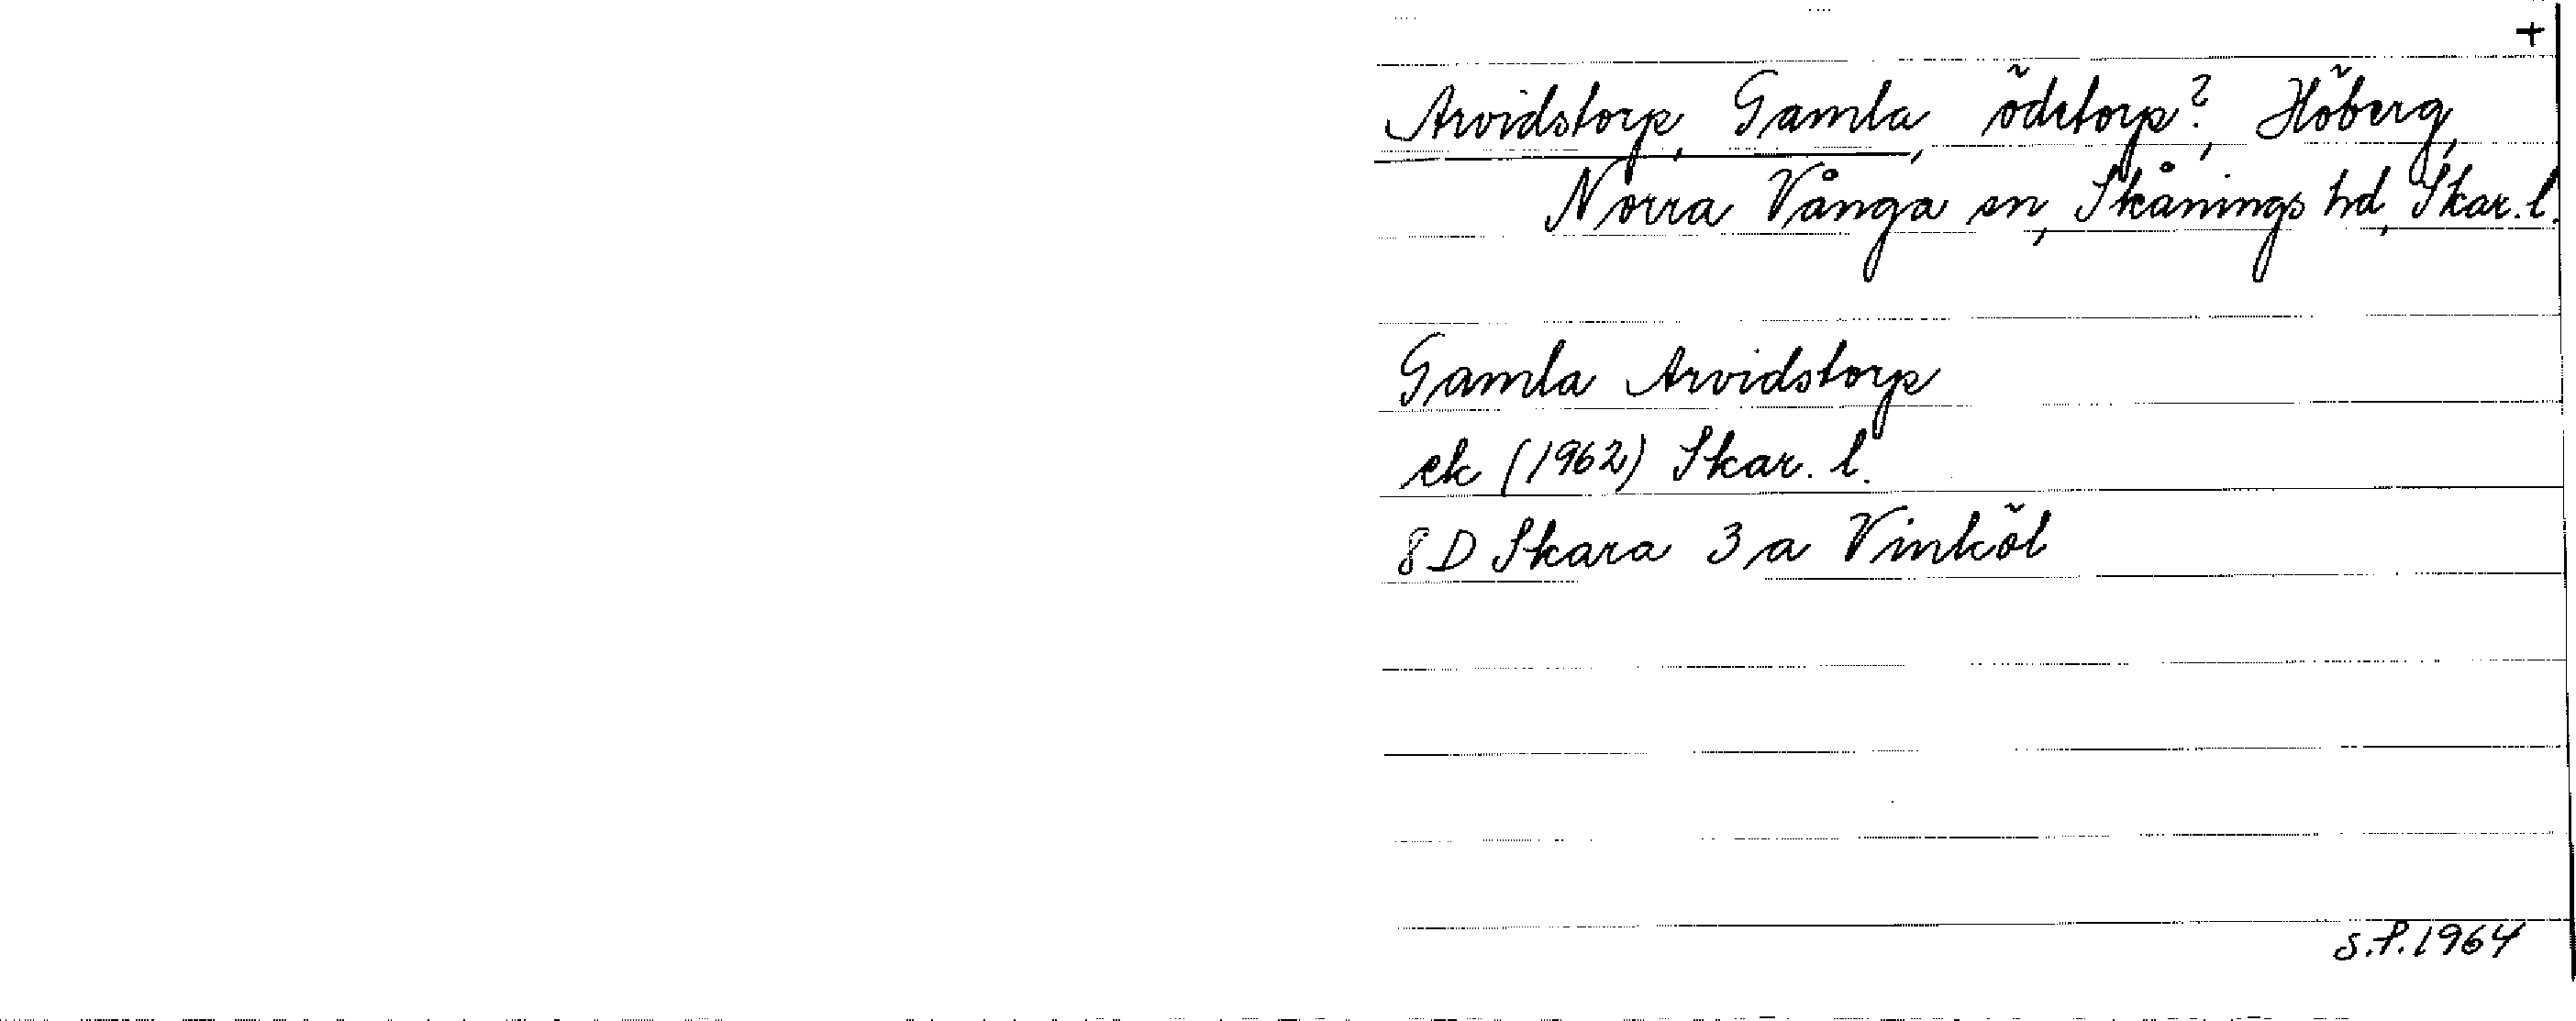 +
Arvidstorp, Gamla, ödetorp?, Höberg,
Norra Vånga sn, Skånings hd, Skar. l.
Gamla Arvidstorp
ek (1962) Skar. l.
8 D Skara 3 a Vinköl
S.P. 1964